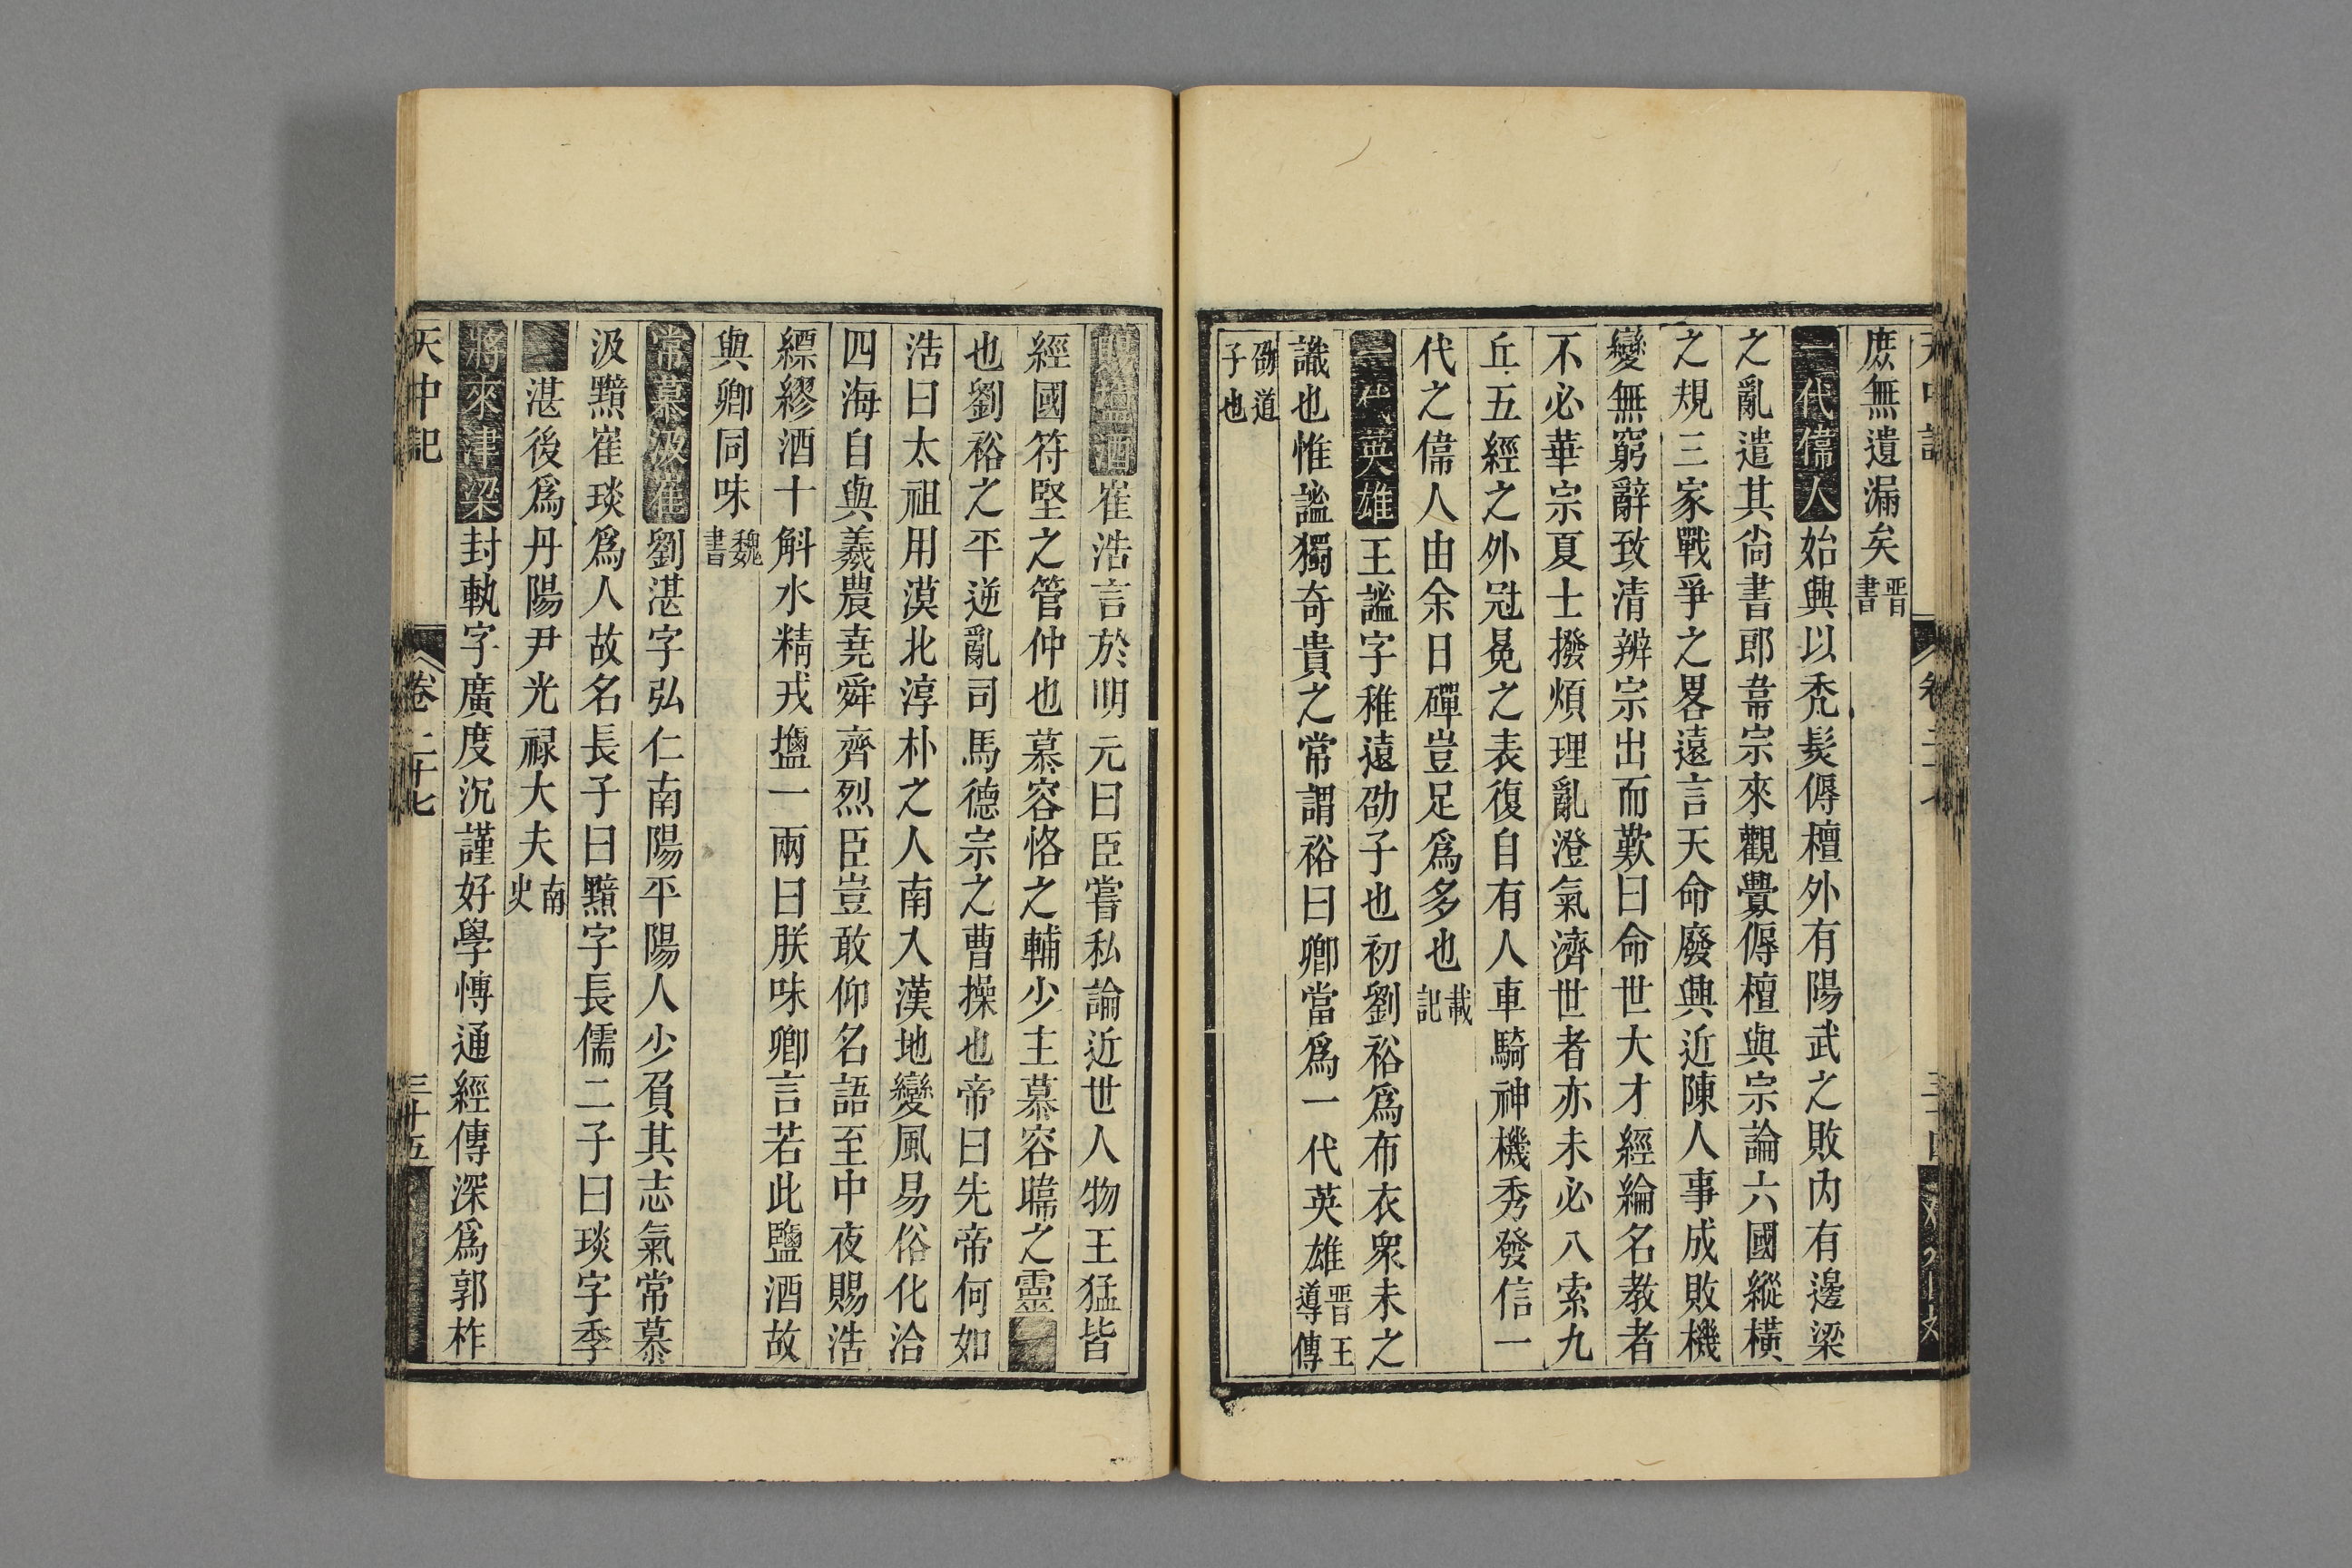 庶無遺漏矣晋書
一代偉人始興以禿髮傉檀外有陽武之敗內有邊梁
之亂遣其尙書郎韋宗來觀釁傉檀與宗論六國縱橫
之規三家戰爭之畧遠言天命廢興近陳人事成敗機
變無窮辭致清辨宗出而歎曰命世大才經綸名教者
不必華宗夏士撥煩理亂澄氣濟世者亦未必八索九
丘五經之外冠冕之表復自有人車騎神機秀發信一
代之偉人由余日磾豈足爲多也載記
一代英雄王謐字稚遠劭子也初劉裕爲布衣衆未之
識也惟謐獨奇貴之常謂裕曰卿當爲一代英雄晋王導傳
劭道子也
鹽酒崔浩言於明元曰臣嘗私論近世人物王猛皆
經國符堅之管仲也慕容恪之輔少主慕容暐之靈
也劉裕之平逆亂司馬德宗之曹操也帝曰先帝何如
浩曰太祖用漠北淳朴之人南入漢地變風易俗化洽
四海自與羲農堯舜齊烈臣豈敢仰名語至中夜賜浩
縹繆酒十斛水精戎鹽一兩曰朕味卿言若此鹽酒故
與卿同味魏書
常慕汲崔劉湛字弘仁南陽平陽人少負其志氣常慕
汲黯崔琰爲人故名長子曰黯字長儒二子曰琰字季
湛後爲丹陽尹光禄大夫南史
將來津梁封軌字廣度沉謹好學博通經傳深爲郭柞
天中記 卷二十七 三十五